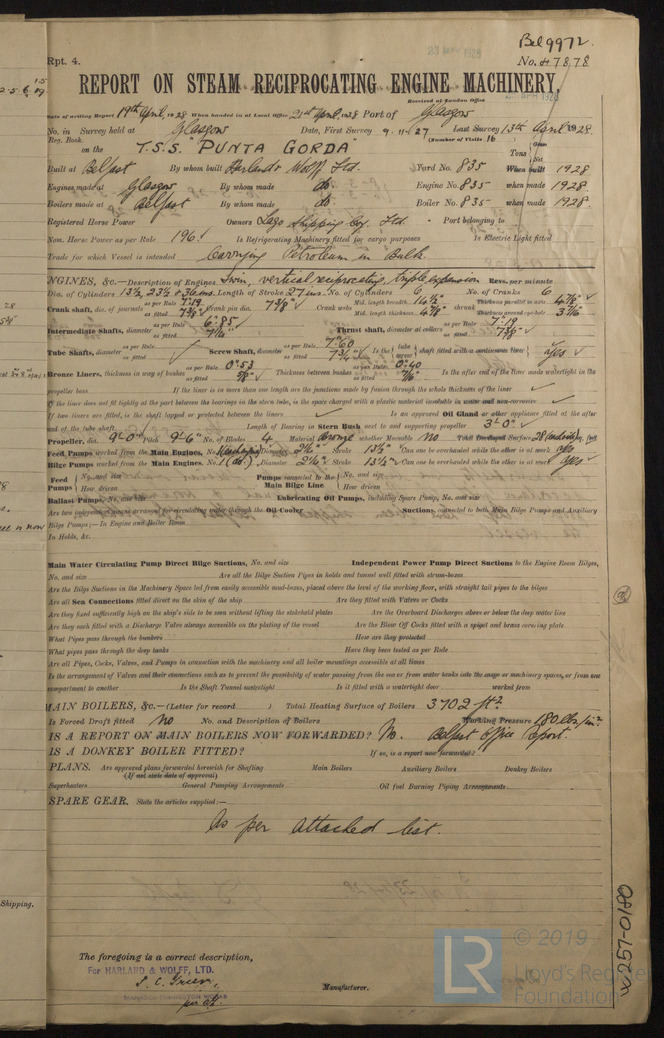 Bel 9972
23 MAY 1928
Rpt. 4.
No. 47878
REPORT ON STEAM RECIPROCATING ENGINE MACHINERY.
Received at London Office
Date of writing Report 19th April, 1928 When handed in at Local Office 21st April, 1928 Port of Glasgow
No. in Survey held at Glasgow Date, First Survey 9-11-27 Last Survey 13th April 1928
Reg. Book. (Number of Visits 16
on the T.S.S. "PUNTA GORDA" Tons Gross Net
Built at Belfast By whom built Harland & Wolff Ltd. Yard No. 835 When built 1928
Engines made at Glasgow By whom made do. Engine No. 835 when made 1928
Boilers made at Belfast By whom made do. Boiler No. 835 when made 1928.
Registered Horse Power Owners Lago Shipping Coy. Ltd. Port belonging to
Nom. Horse Power as per Rule 196 Is Refrigerating Machinery fitted for cargo purposes Is Electric Light fitted
Trade for which Vessel is intended Carrying Petroleum in Bulk.
NGINES, &c.—Description of Engines Twin, vertical reciprocating, triple expansion Revs. per minute
Dia. of Cylinders 13½, 23½ & 36 ins. Length of Stroke 27 ins. No. of Cylinders 6 No. of Cranks 6
Crank shaft, dia. of journals as per Rule 7.19 as fitted 7⅜" Crank pin dia. 7⅜" Crank webs Mid. length breadth 14½" Mid. length thickness 4⅞" shrunk Thickness parallel to axis 4⅞" Thickness around eye-hole
Intermediate Shafts, diameter as per Rule 6.85 as fitted Thrust shaft, diameter at collars as per Rule 7.19 as fitted 7⅜"
Tube Shafts, diameter as per Rule as fitted Screw Shaft, diameter as per Rule 7.60 as fitted 7¾" Is the tube screw shaft fitted with a continuous liner yes
Bronze Liners, thickness in way of bushes as per Rule 0.53 as fitted Thickness between bushes as per Rule 0.40 as fitted 7/16" Is the after end of the liner made watertight in the
propeller boss If the liner is in more than one length are the junctions made by fusion through the whole thickness of the liner
If the liner does not fit tightly at the part between the bearings in the stern tube, is the space charged with a plastic material insoluble in water and non-corrosive
If two liners are fitted, is the shaft lapped or protected between the liners Is an approved Oil Gland or other appliance fitted at the after
end of the tube shaft Length of Bearing in Stern Bush next to and supporting propeller 3'-0"
Propeller, dia. 9'-0" Pitch 9'-6" No. of Blades 4 Material Bronze whether Moveable No Total Developed Surface 28 (each) sq. feet
Feed Pumps worked from the Main Engines, No. Diameter Stroke 13½" Can one be overhauled while the other is at work yes
Bilge Pumps worked from the Main Engines, No. Diameter Stroke 13½" Can one be overhauled while the other is at work yes
Feed Pumps No. and size How driven Pumps connected to the Main Bilge Line No. and size How driven
Ballast Pumps, No. and size Lubricating Oil Pumps, including Spare Pump, No. and size
Are two independent means arranged for circulating water through the Oil Cooler Suctions, connected to both Main Bilge Pumps and Auxiliary
Bilge Pumps;—In Engine and Boiler Room
In Holds, &c.
Main Water Circulating Pump Direct Bilge Suctions, No. and size Independent Power Pump Direct Suctions to the Engine Room Bilges,
No. and size Are all the Bilge Suction Pipes in holds and tunnel well fitted with strum-boxes
Are the Bilge Suctions in the Machinery Space led from easily accessible mud-boxes, placed above the level of the working floor, with straight tail pipes to the bilges
Are all Sea Connections fitted direct on the skin of the ship Are they fitted with Valves or Cocks
Are they fixed sufficiently high on the ship's side to be seen without lifting the stokehold plates Are the Overboard Discharges above or below the deep water line
Are they each fitted with a Discharge Valve always accessible on the plating of the vessel Are the Blow Off Cocks fitted with a spigot and brass covering plate
What Pipes pass through the bunkers How are they protected
What pipes pass through the deep tanks Have they been tested as per Rule
Are all Pipes, Cocks, Valves, and Pumps in connection with the machinery and all boiler mountings accessible at all times
Is the arrangement of Valves and their connections such as to prevent the possibility of water passing from the sea or from water tanks into the cargo or machinery spaces, or from one
compartment to another Is the Shaft Tunnel watertight Is it fitted with a watertight door worked from
MAIN BOILERS, &c.—(Letter for record ) Total Heating Surface of Boilers 3702 ft²
Is Forced Draft fitted No No. and Description of Boilers Working Pressure 180 lbs/in²
IS A REPORT ON MAIN BOILERS NOW FORWARDED? No. Belfast Office Report.
IS A DONKEY BOILER FITTED? If so, is a report now forwarded?
PLANS. Are approved plans forwarded herewith for Shafting Main Boilers Auxiliary Boilers Donkey Boilers
(If not state date of approval)
Superheaters General Pumping Arrangements Oil fuel Burning Piping Arrangements
SPARE GEAR. State the articles supplied:—
As per attached list.
Shipping.
The foregoing is a correct description,
For HARLAND & WOLFF, LTD.
Manufacturer.
W257-0180
LR
© 2019
Lloyd's Register
Foundation